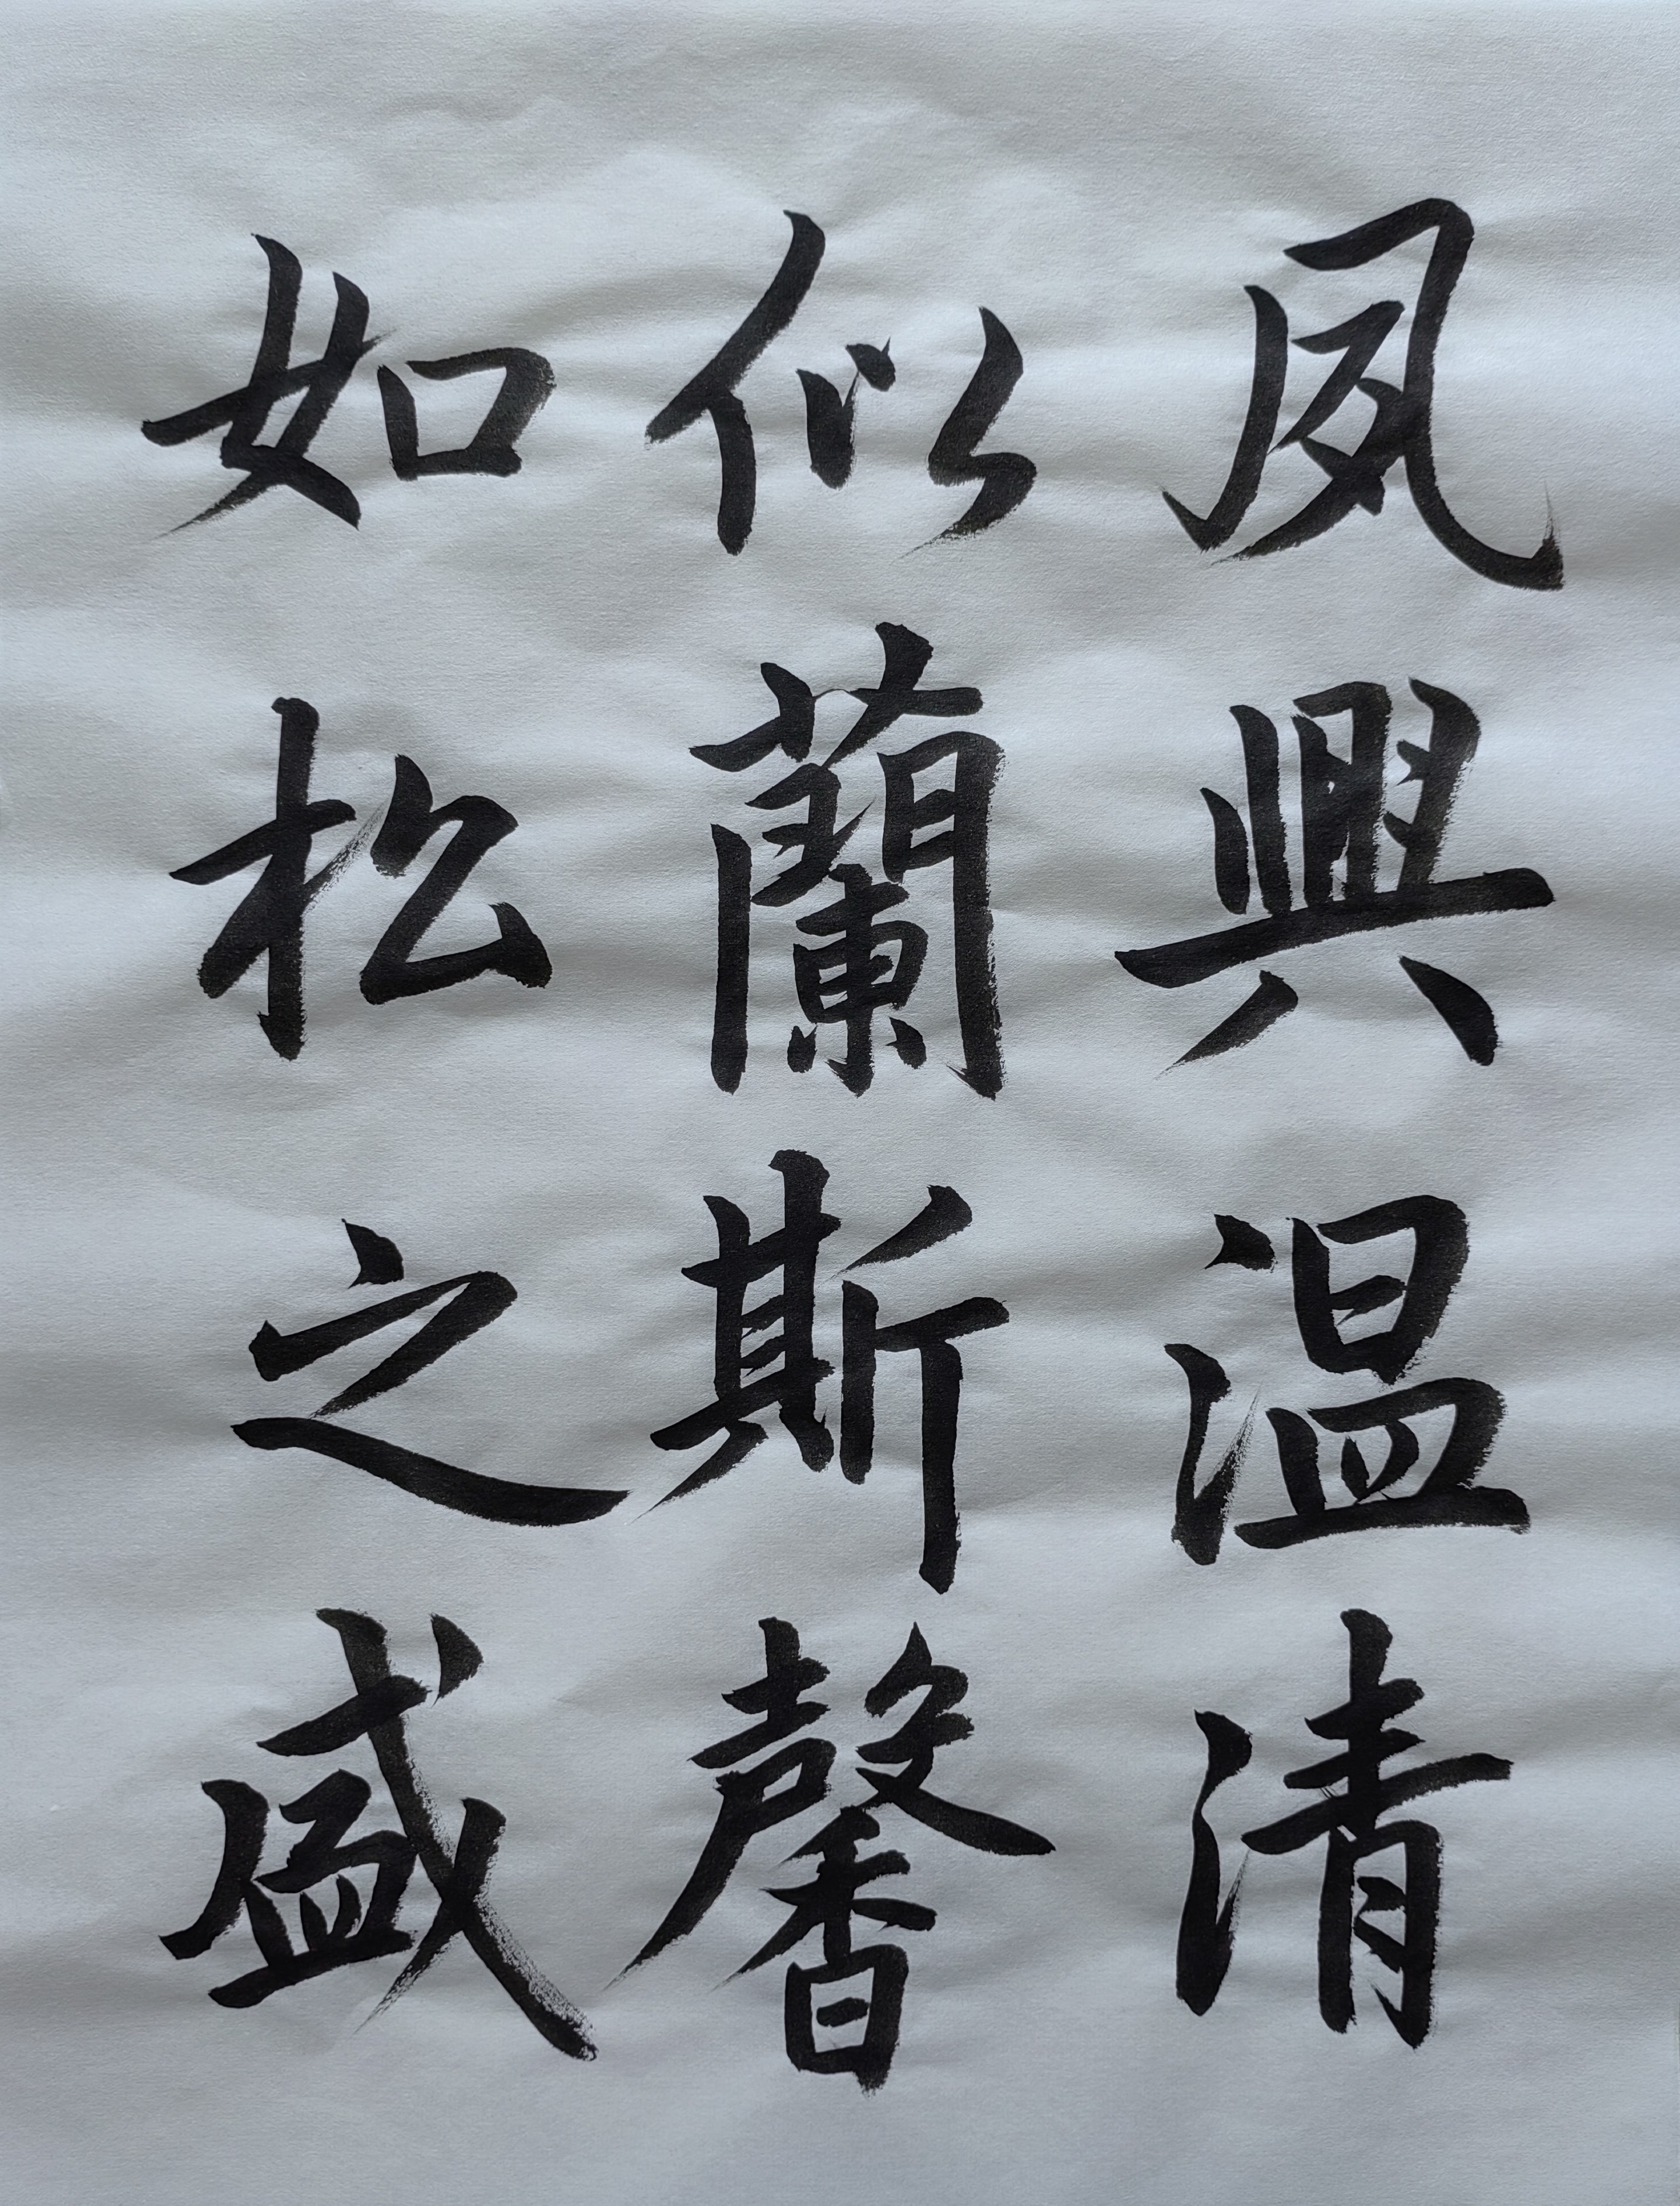 夙興温清
似蘭斯馨
如松之盛